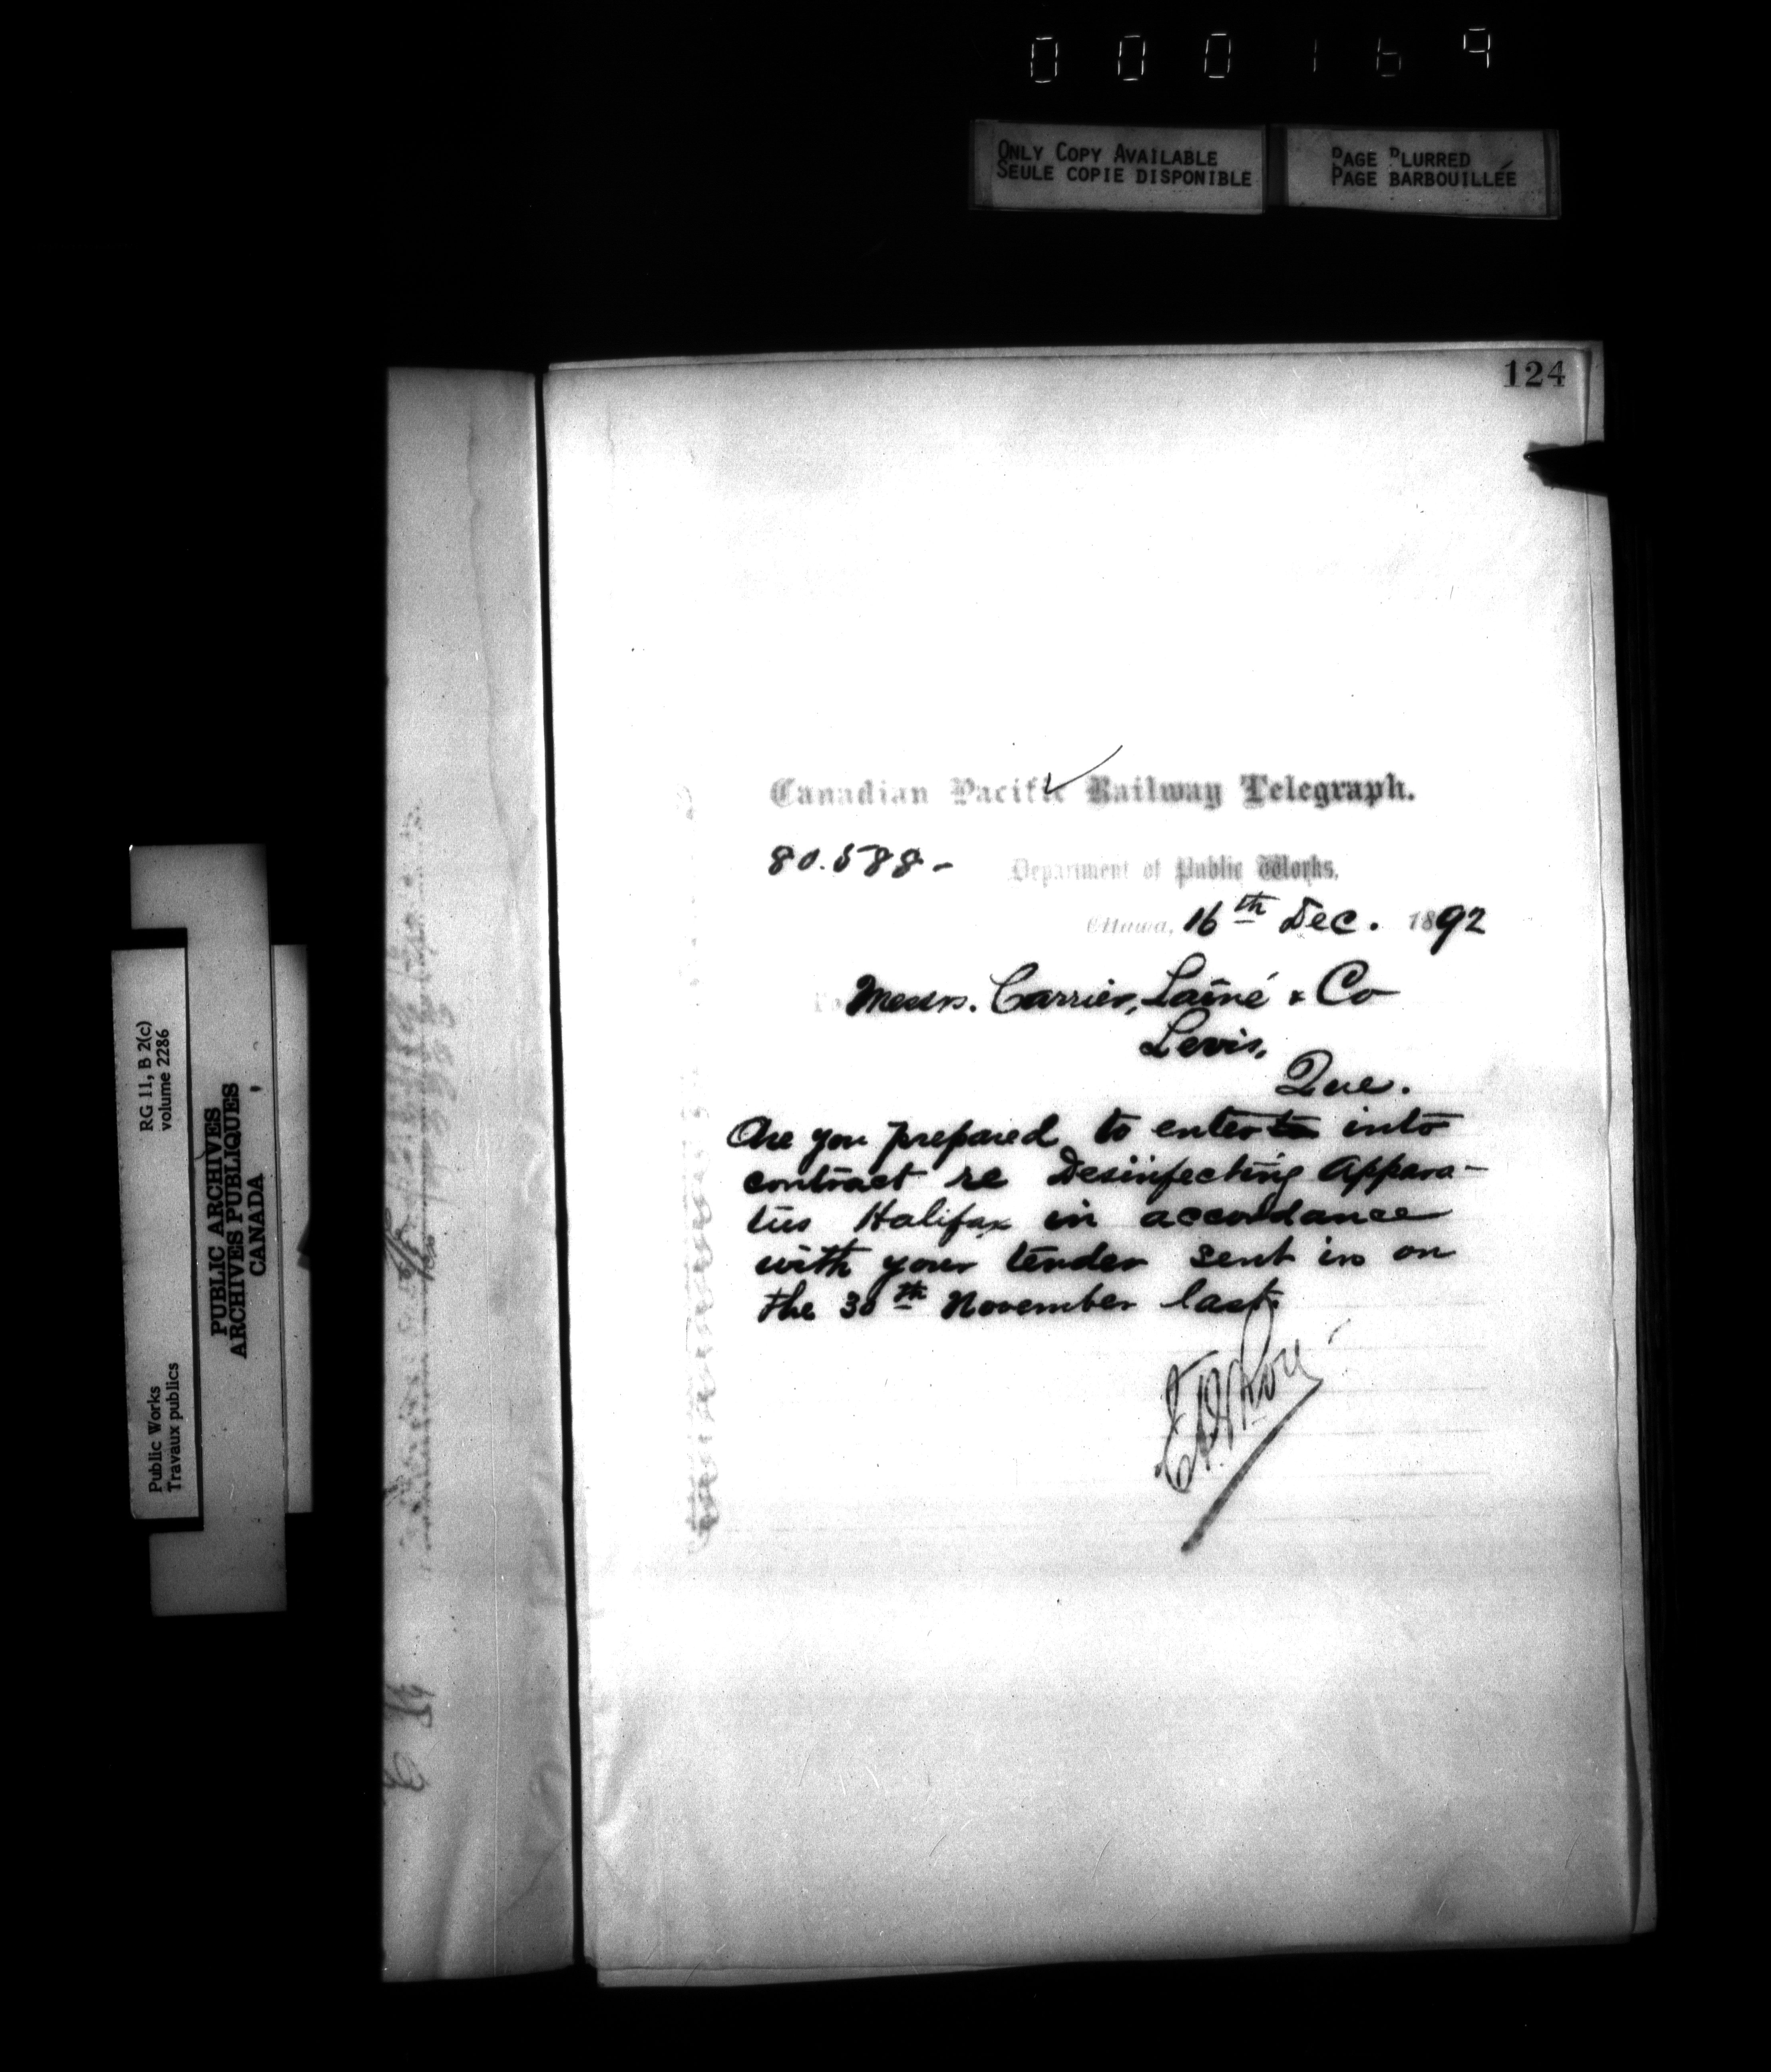 000169
ONLY COPY AVAILABLE
SEULE COPIE DISPONIBLE
PAGE BLURRED
PAGE BARBOUILLÉE
124
Canadian Pacific Railway Telegraph.
80.588-
Department of Public Works,
Ottawa, 16th Dec. 1892
Messrs. Carrier, Lainé & Co
Levis,
Que.
Are you prepared to enter to into
contract re Desinfecting Appara-
tus Halifax in accordance
with your tender sent in on
the 30th November last.
E.F.E. Roy
RG 11, B 2(c)
volume 2286
PUBLIC ARCHIVES
ARCHIVES PUBLIQUES
CANADA
Public Works
Travaux publics